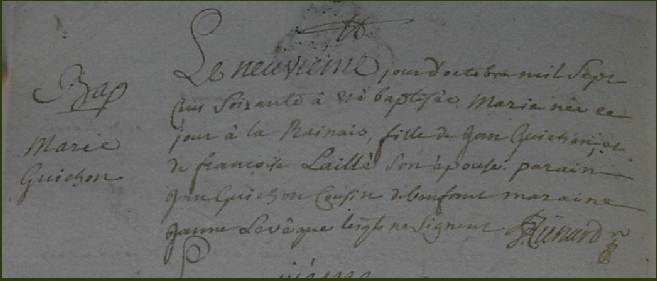 Bap
Marie
Guichon
Le neuvieme jour d'octobre mil Sept
Cens Soixante à été baptisée Marie née ce
jour à la Rainais, fille de Jan Guichon, et
de francoise Laillé Son épouse. parain
Jan Guichon Cousin maraine
Janne Levêque ne Signent